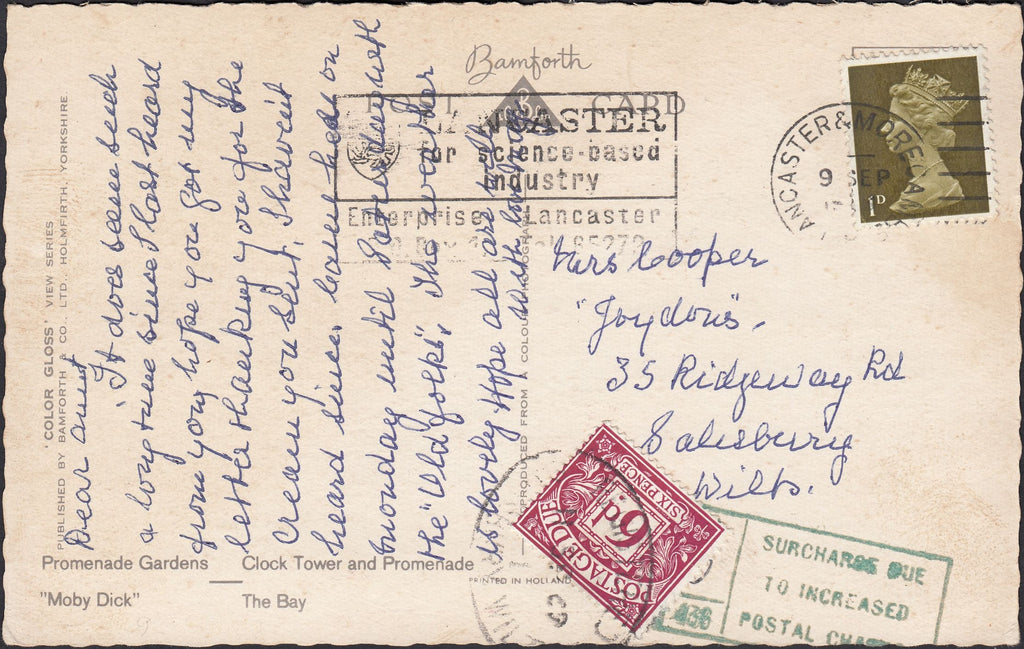 Bamforth
POST CARD
LANCASTER
for science-based
industry
Enterprise Lancaster
LANCASTER & MORECA
9 SEP
1D
Dear aunt
It does seem such
a long time since I last heard
from you, hope you got my
letter thanking you for the
Cream you sent, I havent
heard since. Came here on
monday until Saturday with
the "Old folks", The weather
is lovely Hope all are well
With love
Mrs Cooper
"Joydoris",
35 Ridgeway Rd
Salesberry
Wilts.
'COLOR GLOSS' VIEW SERIES
PUBLISHED BY BAMFORTH & CO., LTD., HOLMFIRTH, YORKSHIRE.
REPRODUCED FROM A COLOUR PHOTOGRAPH
Promenade Gardens
Clock Tower and Promenade
"Moby Dick"
The Bay
PRINTED IN HOLLAND
POSTAGE DUE
6d.
SIXPENCE
SURCHARGE DUE
TO INCREASED
POSTAL CHA
436